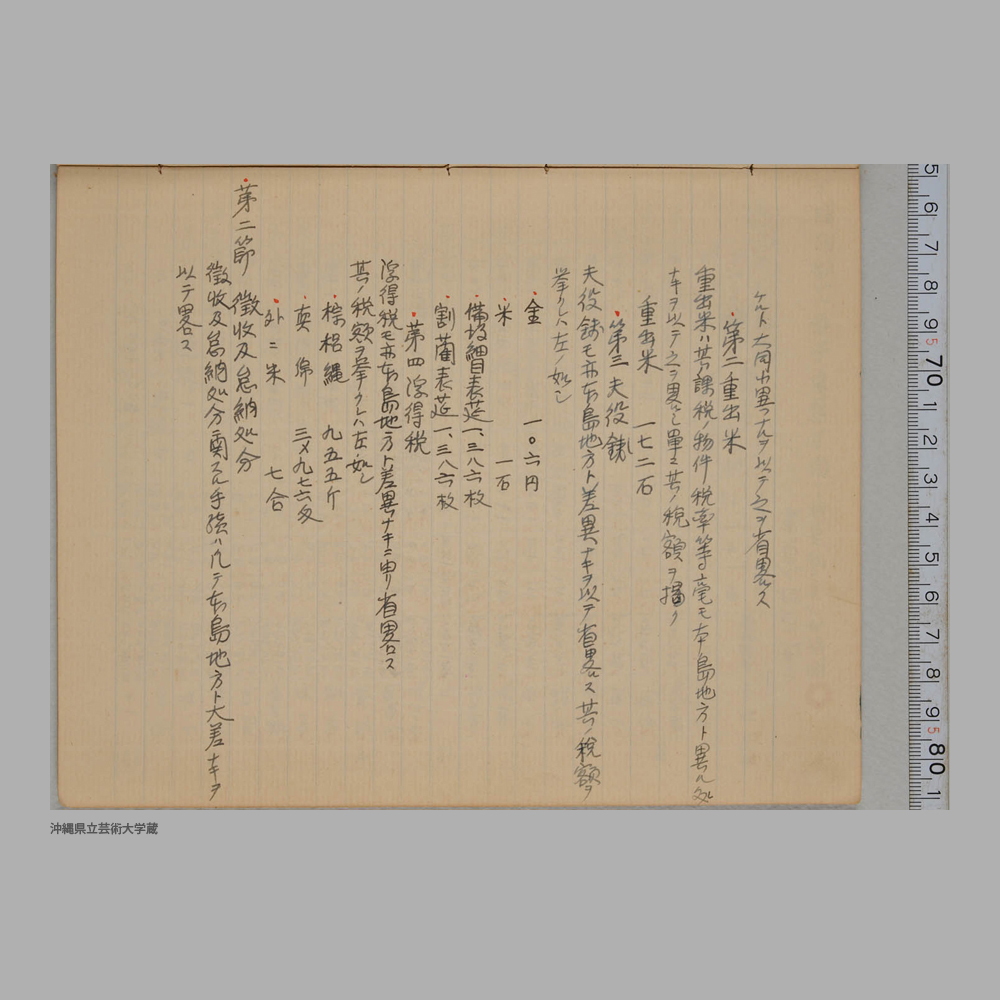 ケレト大同小異ナルヲ以テ之ヲ省畧ス
第二 重出米
重出米ハ其課税ノ物件税率等毫モ本島地方ト異ル処
ナキヲ以テ之ヲ畧シ単ニ其ノ税額ヲ掲ク
重出米 一七二石
第三 夫役銭
夫役銭モ亦本島地方ト差異ナキヲ以テ省畧ス其ノ税額ヲ
挙クレハ左ノ如シ
金 一〇六円
米 一石
備後細目表莚 一、三八六枚
割藺表莚 一、三八六枚
第四 浮得税
浮得税モ亦本島地方ト差異ナキニ由リ省畧ス
其ノ税額ヲ挙クレハ左ノ如シ
棕梠縄 九五五斤
真綿 三〆九七六匁
外ニ米 七合
第二節 徴収及怠納処分
徴収及怠納処分ニ関スル手続ハ凡テ本島地方ト大差ナキヲ
以テ畧ス
5 6 7 8 9 70 1 2 3 4 5 6 7 8 9 80 1
沖縄県立芸術大学蔵